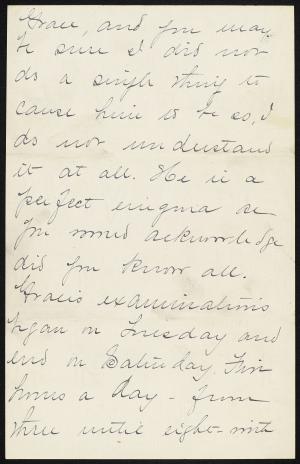 Grace, and you may
be sure I did not
do a single thing to
cause him to be so, I
do not understand
it at all. He is a
perfect enigma as
you would acknowledge
did you know all.
Grace's examinations
began on Tuesday and
end on Saturday. Five
hours a day - from
three until eight - with